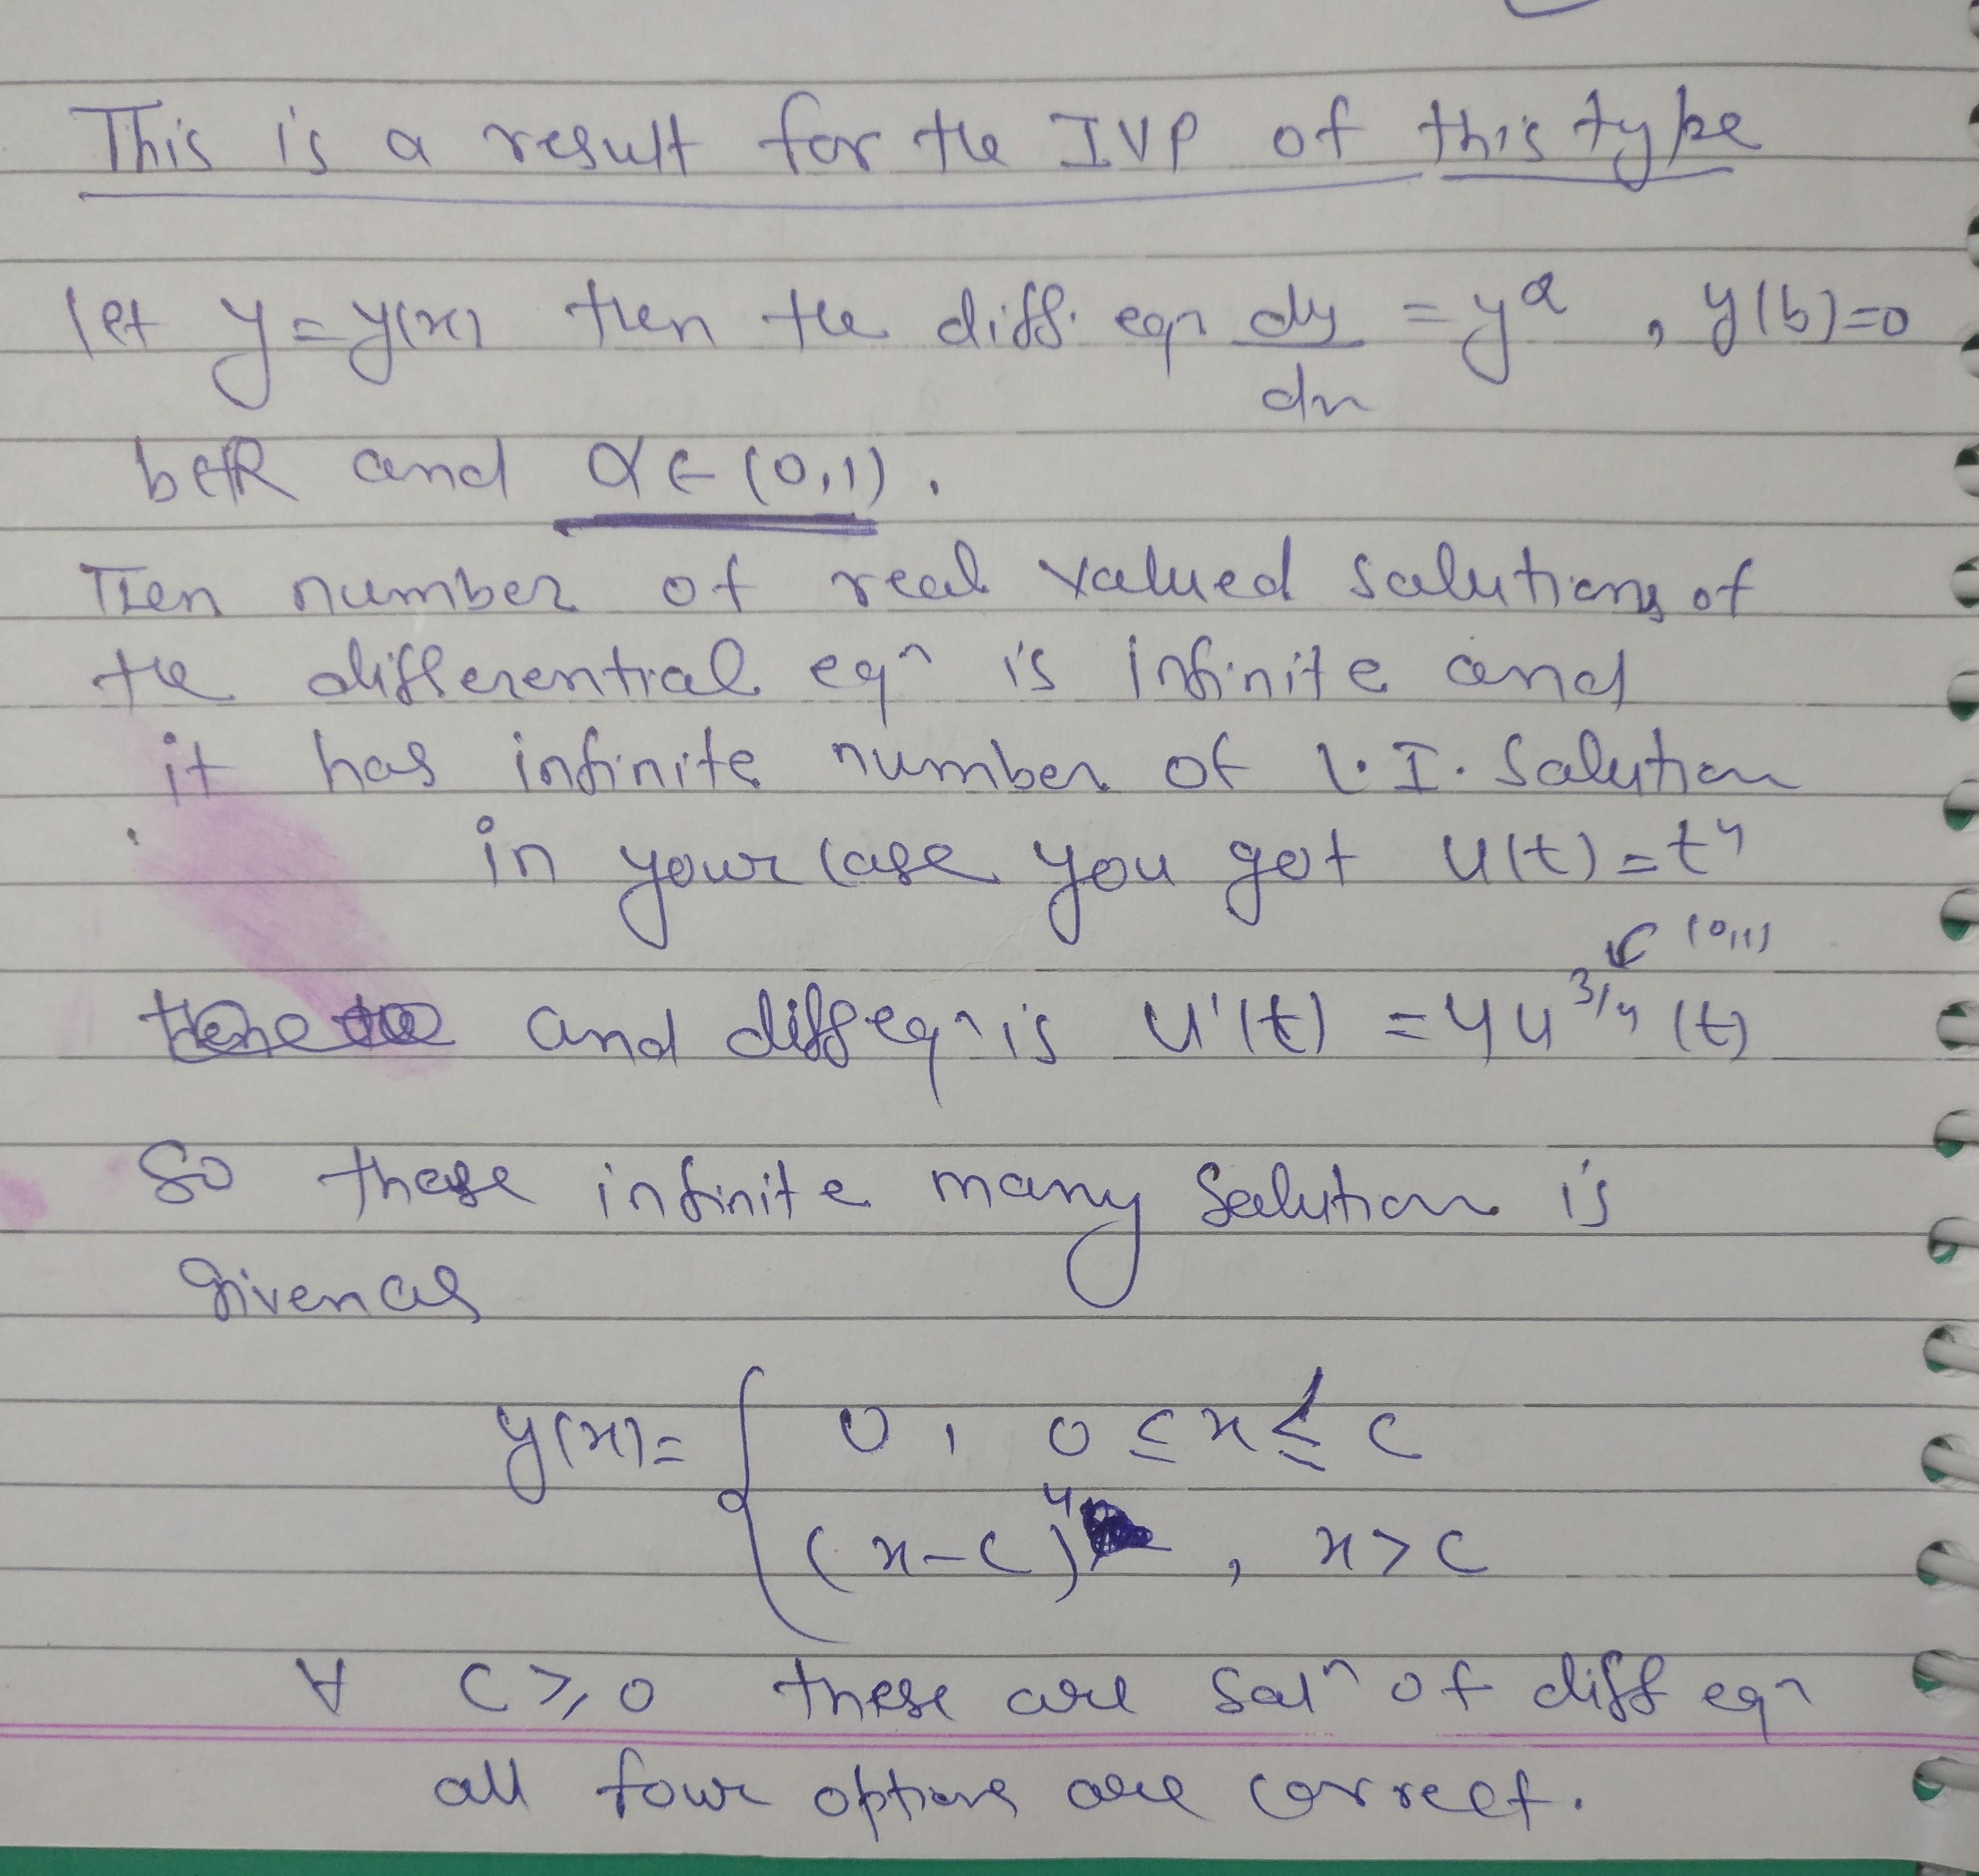 This is a result for the IVP of this type
let y=y(x) then the diff. eqn dy/dx = y^α , y(b)=0
b∈R and α∈(0,1).
Then number of real valued solutions of
the differential eqn is infinite and
it has infinite number of L.I. Solution
in your case you get u(t)=t^4
(0,1)
and diff eqn is u'(t) = 4u^3/4 (t)
So these infinite many Solution is
given as
y(x)= { 0 , 0 ≤ x ≤ c
(x-c)^4 , x > c
∀ c ≥ 0 these are Soln of diff eqn
all four options are correct.